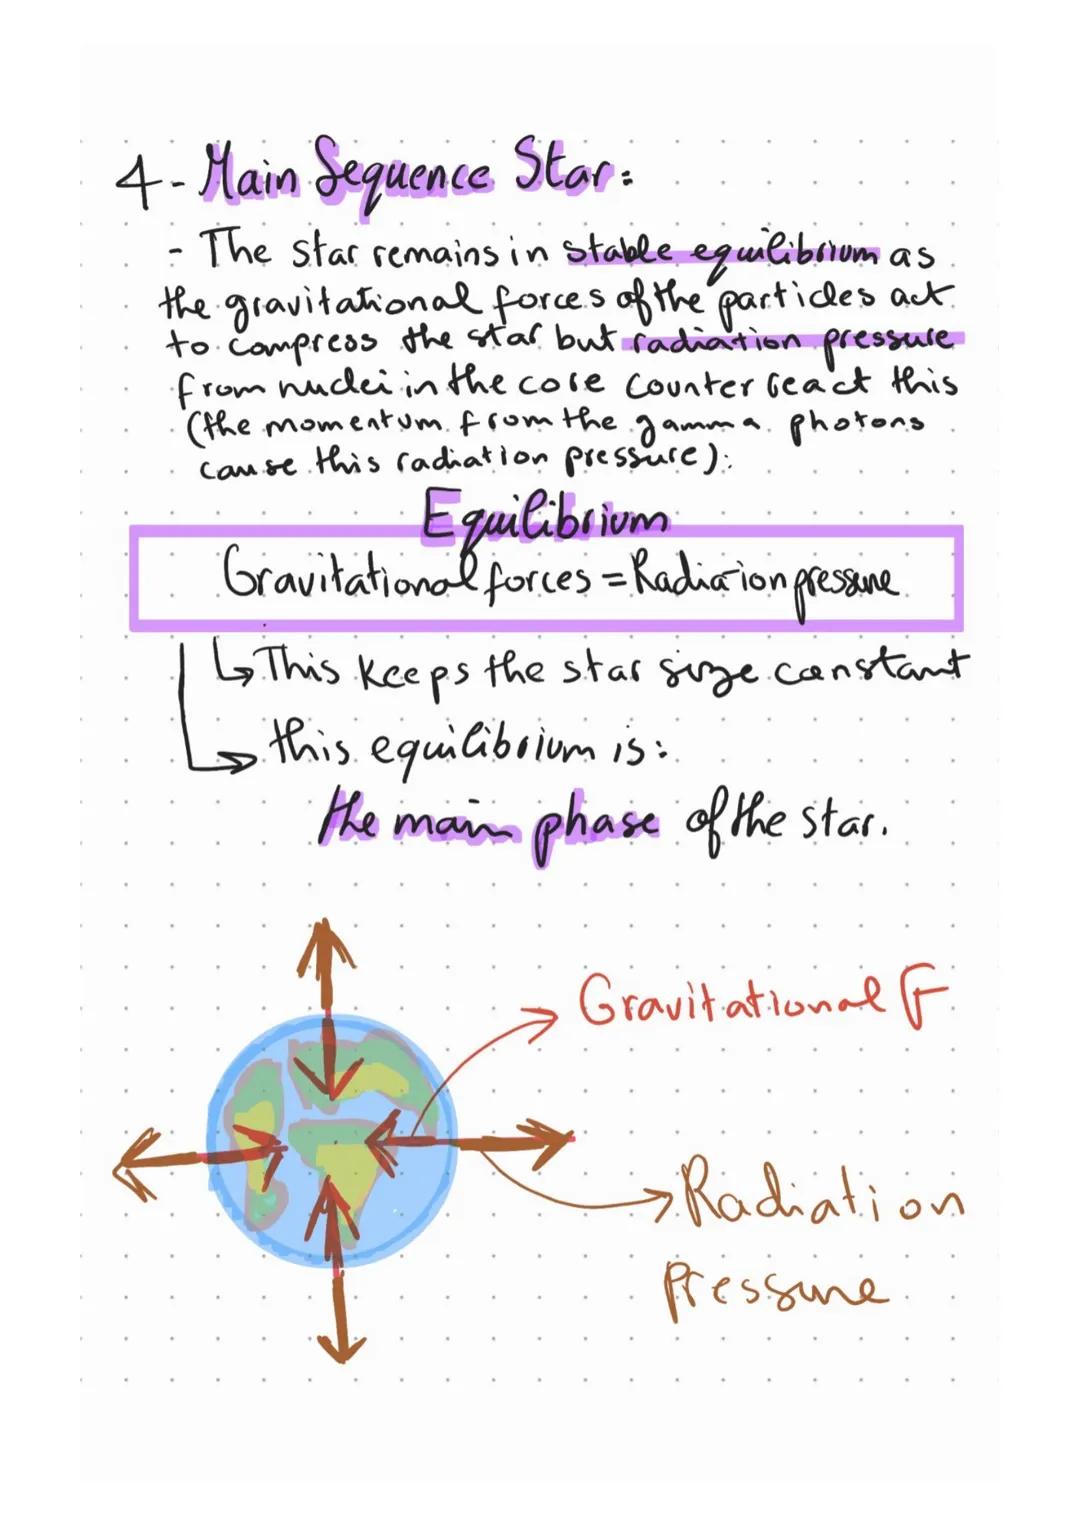 4- Main Sequence Star:
- The star remains in stable equilibrium as
the gravitational forces of the particles act
to compress the star but radiation pressure
from nuclei in the core counter react this
(the momentum from the gamma photons
cause this radiation pressure):
Equilibrium
Gravitational forces = Radiation pressure
↳ This keeps the star size constant
↳ this equilibrium is:
the main phase of the star.
Gravitational F
Radiation
Pressure